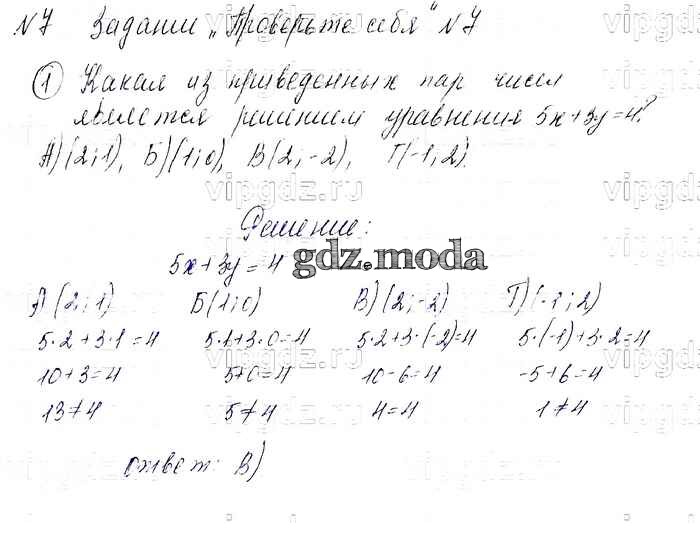 №7 Задании „Проверьте себя" №7
① Какая из приведенных пар чисел
является решением уравнения 5x+3y=4?
А)(2;1), Б)(1;0), В(2;-2), Г(-1;2).
Решение:
5x+3y=4
gdz.moda
А) (2;1) Б(1;0) В)(2;-2) Г)(-1;2)
5·2+3·1=4 5·1+3·0=4 5·2+3·(-2)=4 5·(-1)+3·2=4
10+3=4 5+0=4 10-6=4 -5+6=4
13≠4 5≠4 4=4 1≠4
ответ: В)
vipgdz.ru